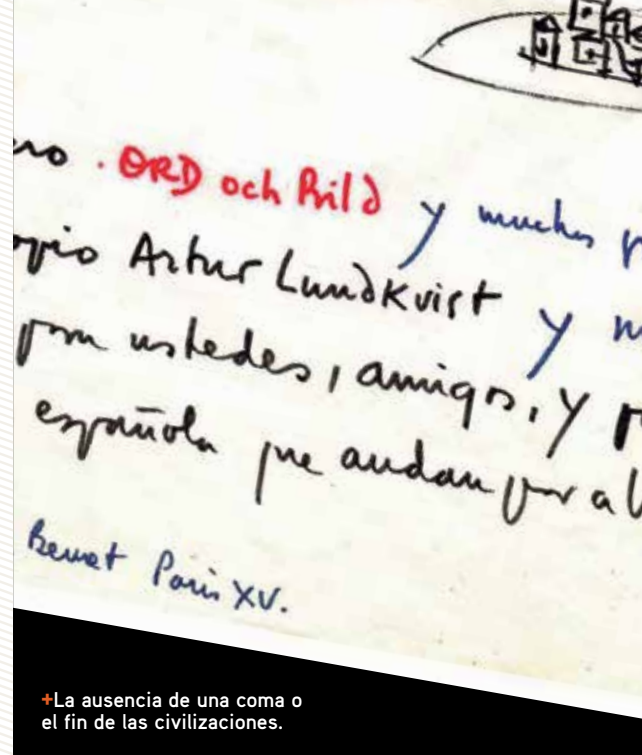 . ORD och Bild y muchos
Artur Lundkvist y
ustedes, amigos, y
española que andan por
Paris XV.
+La ausencia de una coma o
el fin de las civilizaciones.